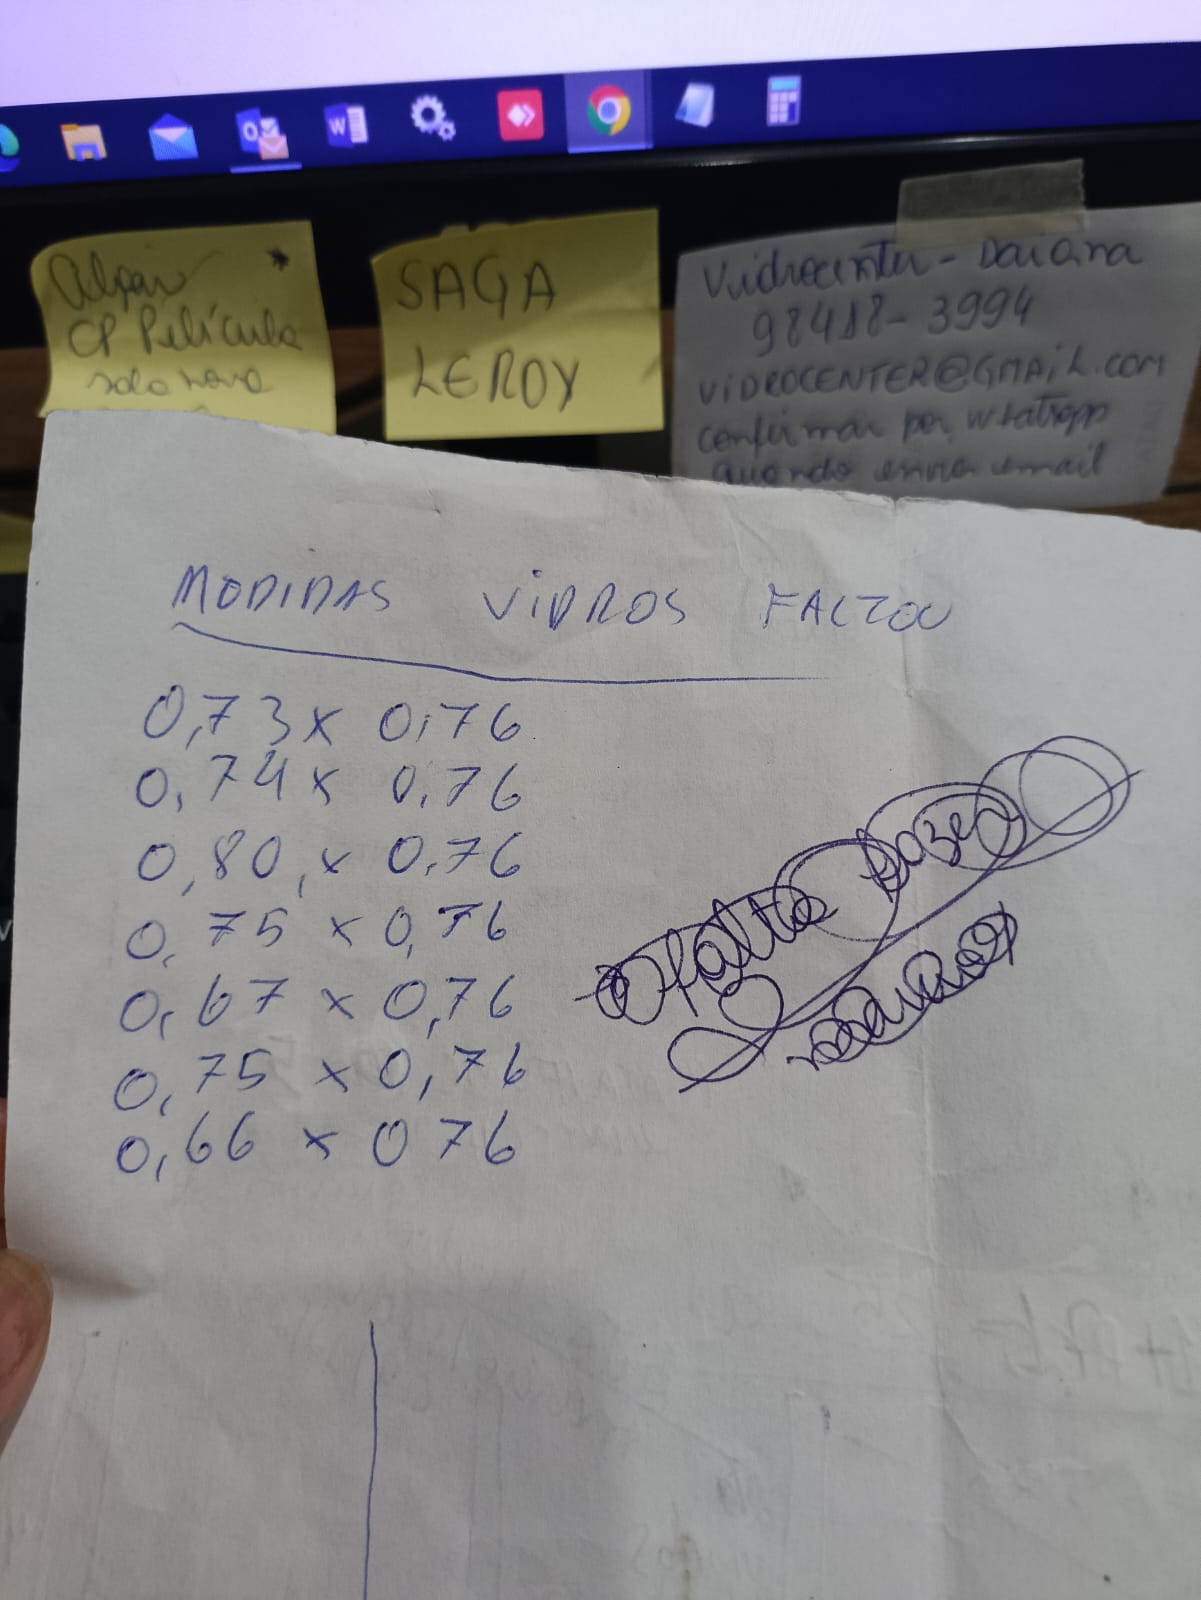 CP Película
solo nova
SAGA
LEROY
Vidrocenter - Daiana
98418-3994
VIDROCENTER@GMAIL.COM
confirmar por whatsapp
quando enviar email
MODIDAS VIDROS FALTOU
0,73 x 0,76
0,74 x 0,76
0,80, x 0,76
0,75 x 0,76
0,67 x 0,76
0,75 x 0,76
0,66 x 0 76
falta